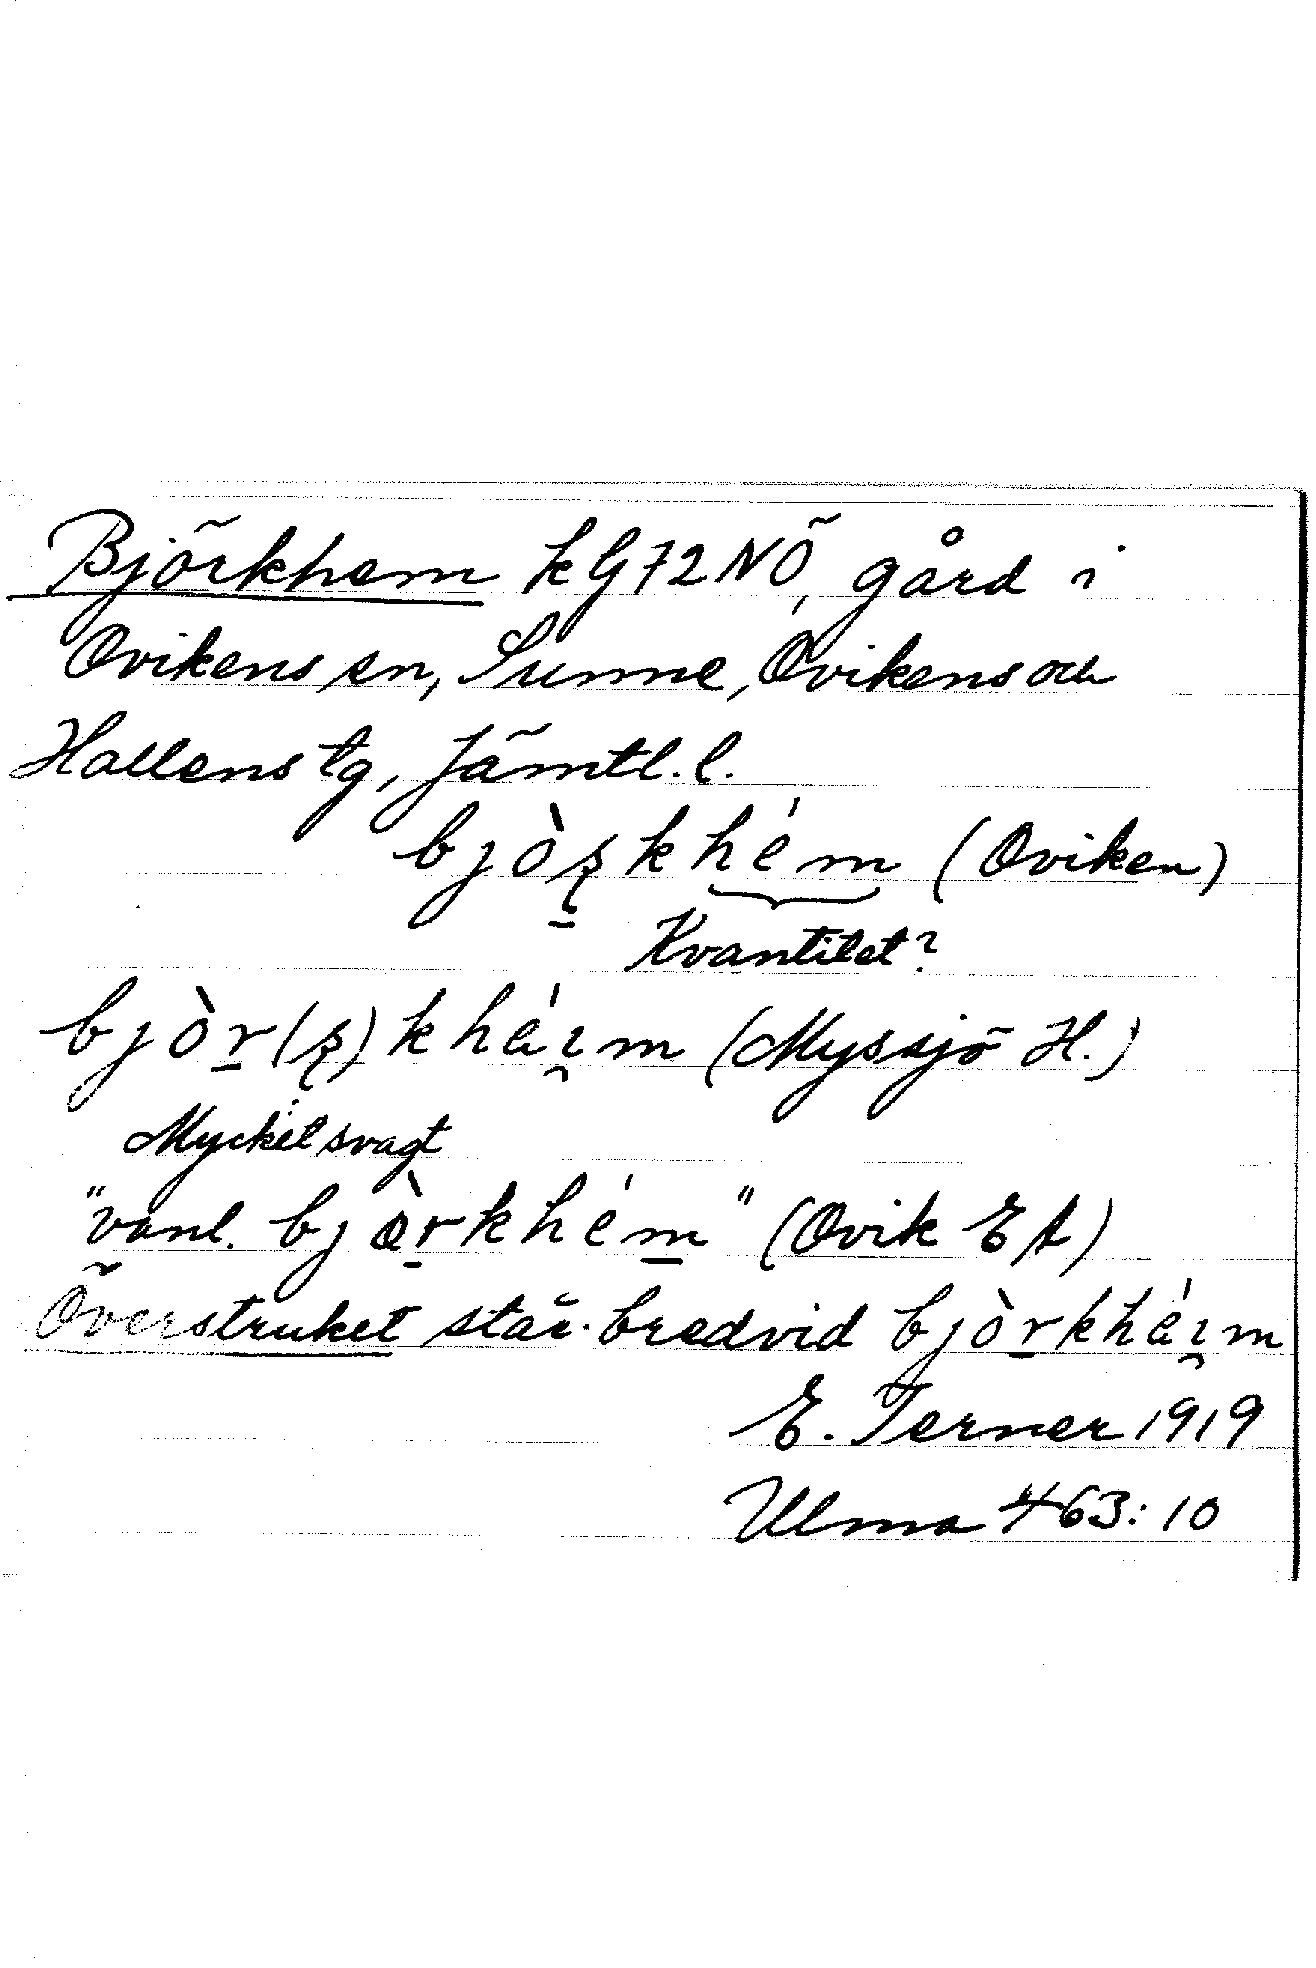 Björkhem kG72NÖ, gård i
Ovikens sn, Sunne, Ovikens och
Hallens tg, Jämtl. l.
bjòꭋ̱khém (Oviken)
Kvantitet?
bjòṟ(ʂ)khéı̯m (Myssjö H.)
Mycket svagt
"vanl. bjòṟkhém̱" (Ovik EA)
Överstruket står bredvid bjòṟkhéı̯m
E. Terner 1919
Ulma 463:10